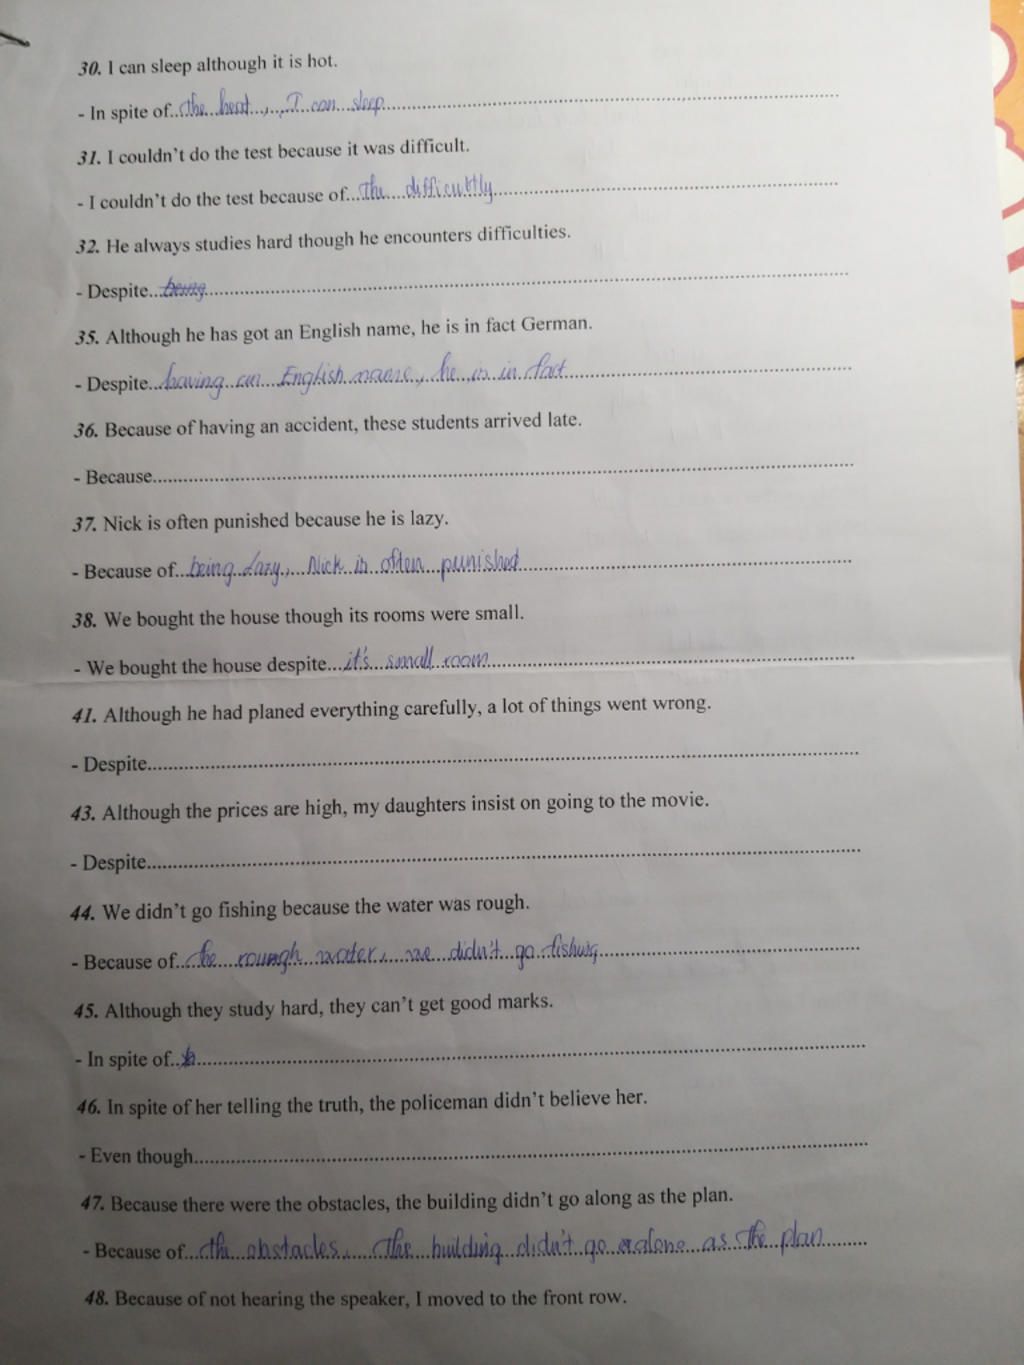 30. I can sleep although it is hot.
- In spite of...the heat, I can sleep
31. I couldn't do the test because it was difficult.
- I couldn't do the test because of...The difficultly
32. He always studies hard though he encounters difficulties.
- Despite...being
35. Although he has got an English name, he is in fact German.
- Despite...having an English name, he is in fact
36. Because of having an accident, these students arrived late.
- Because...
37. Nick is often punished because he is lazy.
- Because of...being lazy, Nick is often punished
38. We bought the house though its rooms were small.
- We bought the house despite...it's small room
41. Although he had planed everything carefully, a lot of things went wrong.
- Despite...
43. Although the prices are high, my daughters insist on going to the movie.
- Despite...
44. We didn't go fishing because the water was rough.
- Because of...the rough water, we didn't go fishing
45. Although they study hard, they can't get good marks.
- In spite of...
46. In spite of her telling the truth, the policeman didn't believe her.
- Even though...
47. Because there were the obstacles, the building didn't go along as the plan.
- Because of...the obstacles, the building didn't go alone as the plan
48. Because of not hearing the speaker, I moved to the front row.